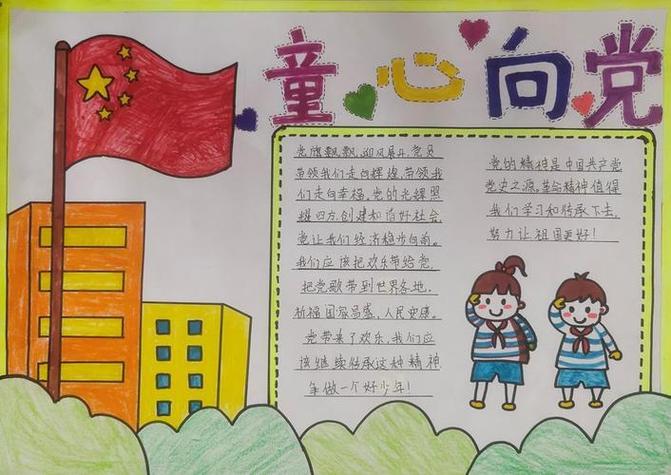 童心向党
党旗飘飘,迎风展斗,党员
带领我们走向辉煌,带领我
们走向幸福,党的光辉照
耀四方,创建和谐好社会,
党让我们经济稳步向前。
我们应该把欢乐带给党,
把党歌带到世界各地,
祈福国容昌盛,人民安康。
党带来了欢乐,我们应
该继续传承这种精神
争做一个好少年!
党的精神是中国共产党
党史之源,革命精神值得
我们学习和传承下去,
努力让祖国更好!